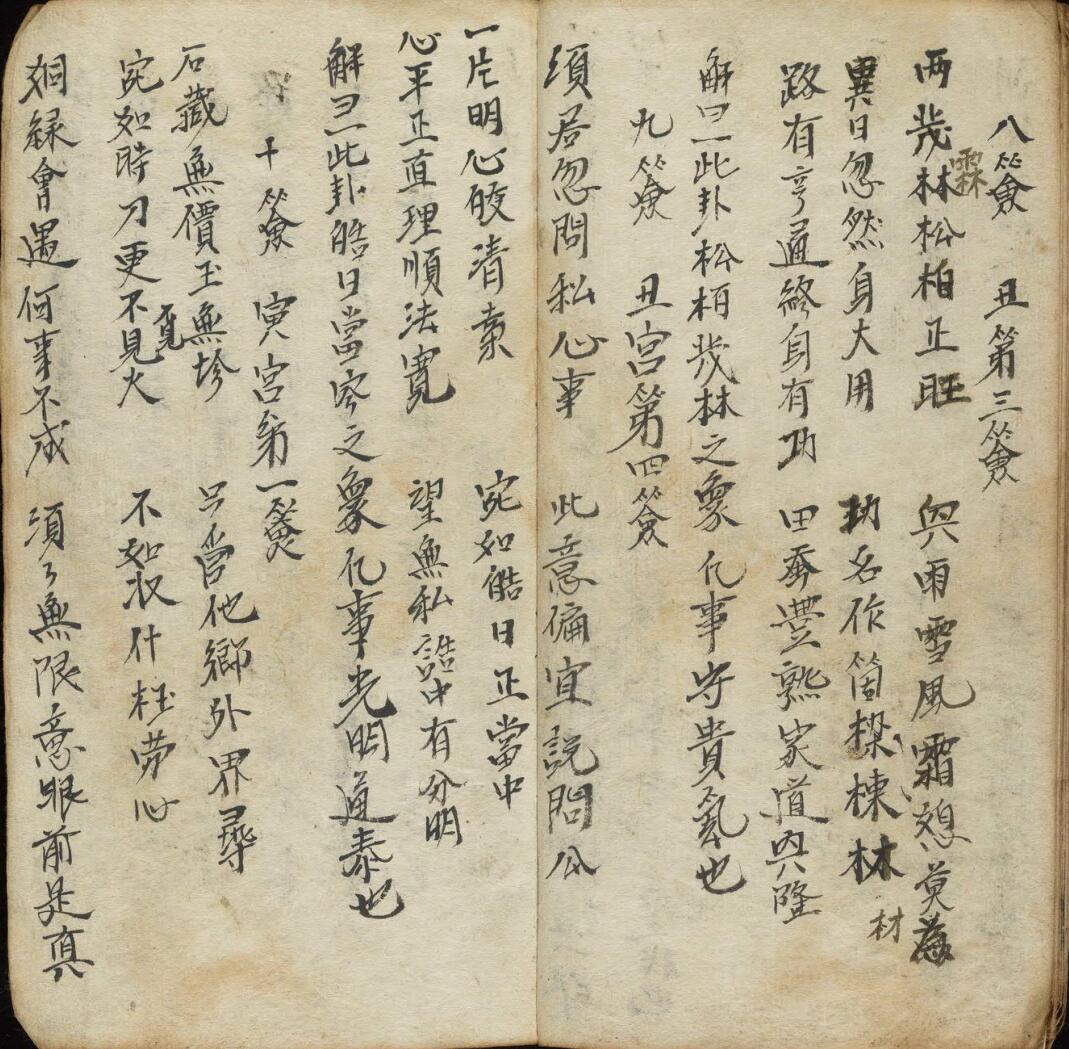 八簽 丑第三簽
両茂林松柏正旺 與雨雪風霜憩莫為
霖
異日忽然身大用 功名作箇樑棟林
材
路有亨通終身有功 田蚕豐熟家道興隆
解曰此卦松栢茂林之象凡事守貴氣也
九簽 丑宮第四簽
須君忽問私心事 此意偏宜説問公
一片明心皎清素 宛如皓日正當中
心平正直理順法寛 望無私誥中有分明
解曰此卦皓日當空之象凡事光明道泰也
十簽 寅宮第一簽
石藏無價玉無珍 只管他鄉外界尋
宛如時刀更不見火 不如収什枉劳心
覓
姻緑會遇何事不成 須々無限意眼前是真